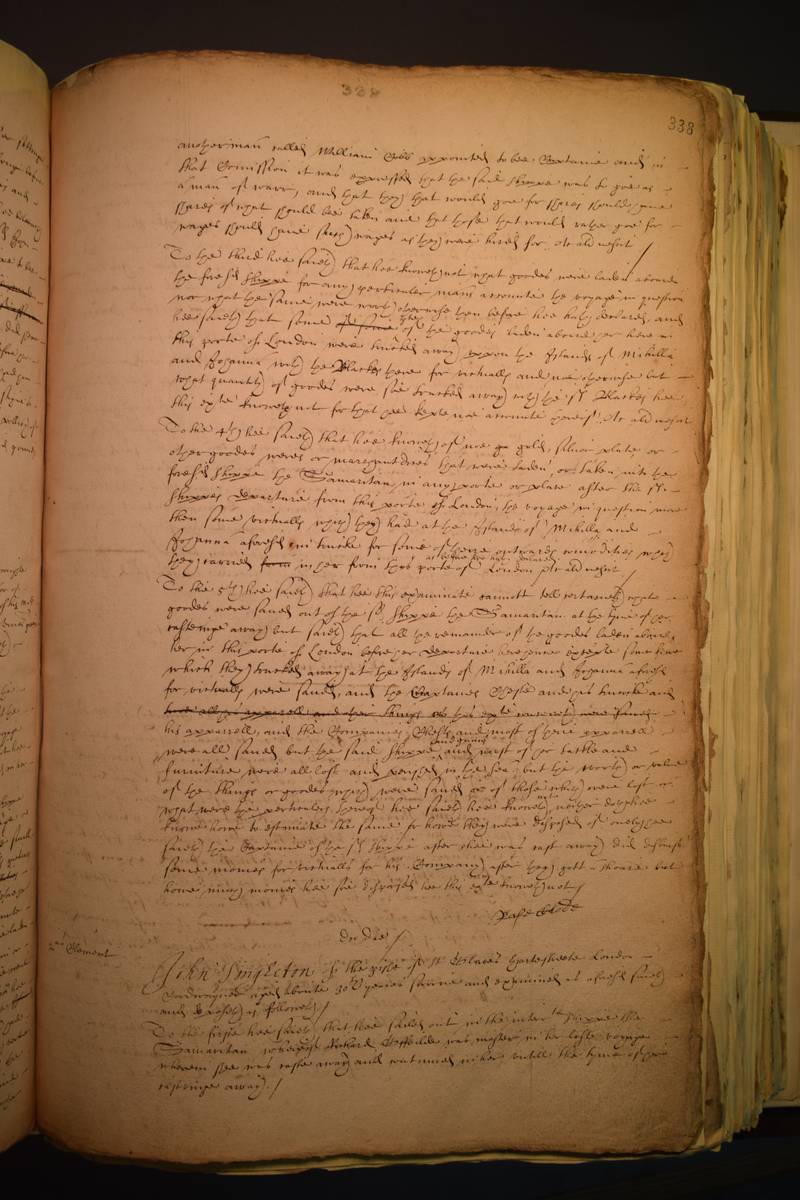 338
338
another man called William Cobb appointed to bee Captaine and in
that Comission it was expressed that the said shippe was to goe as
a man of warr, and that they that would goe for shares should have
shares of what should bee taken and that those that would rather goe for
wages should have such wages as they were hired for. et ald nescit /
To the third hee saieth that hee knoweth not what goodes were laden aboard
the foresaid shippe for any particuler mans accounte the voyage in question
nor what the same were worth otherwise then before hee hath declared, and
hee saieth that some of the goodes laden aboard her here in
this porte of London were trucked away upon the Islands of Mohilla
and Joanna with the Blackes there for victualls and noe otherwise but
what quantity of goodes were soe trucked away with the sd Blackes hee
this exate knoweth not for that hee kepte noe accounte thereof. et ald nescit
To the 4th hee saieth that hee knoweth of noe gold, silver plate or
other goodes wares or marchandizes that were laden, or taken into the
foresaid shippe the Samaritan in any porte or place after the sd
shippes departure from this porte of London, the voyage in question more
then some victualls which they had at the Islands of Mohilla and
Joanna aforesaid in trucke for some of theire outwards comodities which
they carried from in her from this porte of London et ald nescit /
To the 5th hee saieth that hee this examinate cannott tell certainely what
goodes were saved out of the sd shippe the Samaritan at the tyme of her
castinge away but saieth that all the remainder of the goodes laden aboard
her in this porte of London before her departure hence except some these
which they trucked away at the Islands of Mohilla and Joanna aforesaid
for victualls were saved, and the Captaines Cheste and his trunke and
his apparrell, and the Companies Chests and most of there apparell
were all saved but the said shippe and gunns and most of her tackle and
furniture were all lost and perished in the sea, but the worth or value
of the things or goodes which were saved or of those which were lost or
what were the perticulers thereof hee saieth hee knoweth neither doth hee
knowe howe to estimate the same or howe they were disposed of onely hee
saieth the Captaine of the sd shippe after shee was cast away did disburse
some monies for victualls for his Company after they gott a shoare but
howe many monies hee soe disposed hee this exate knoweth not /
dn die /
2us Clement
John Singleton of the parish of St Olaves Hartestreete London
Cordwayner aged aboute 30 yeares sworne and examined as aforesaid saieth
and deposeth as followeth /
To the firste hee saieth that hee sailed out in the inter the shippe the
Samaritan whereof Richard was master in her laste voyage
wherein shee was caste away and continued in her untill the tyme of her
castinge away. /